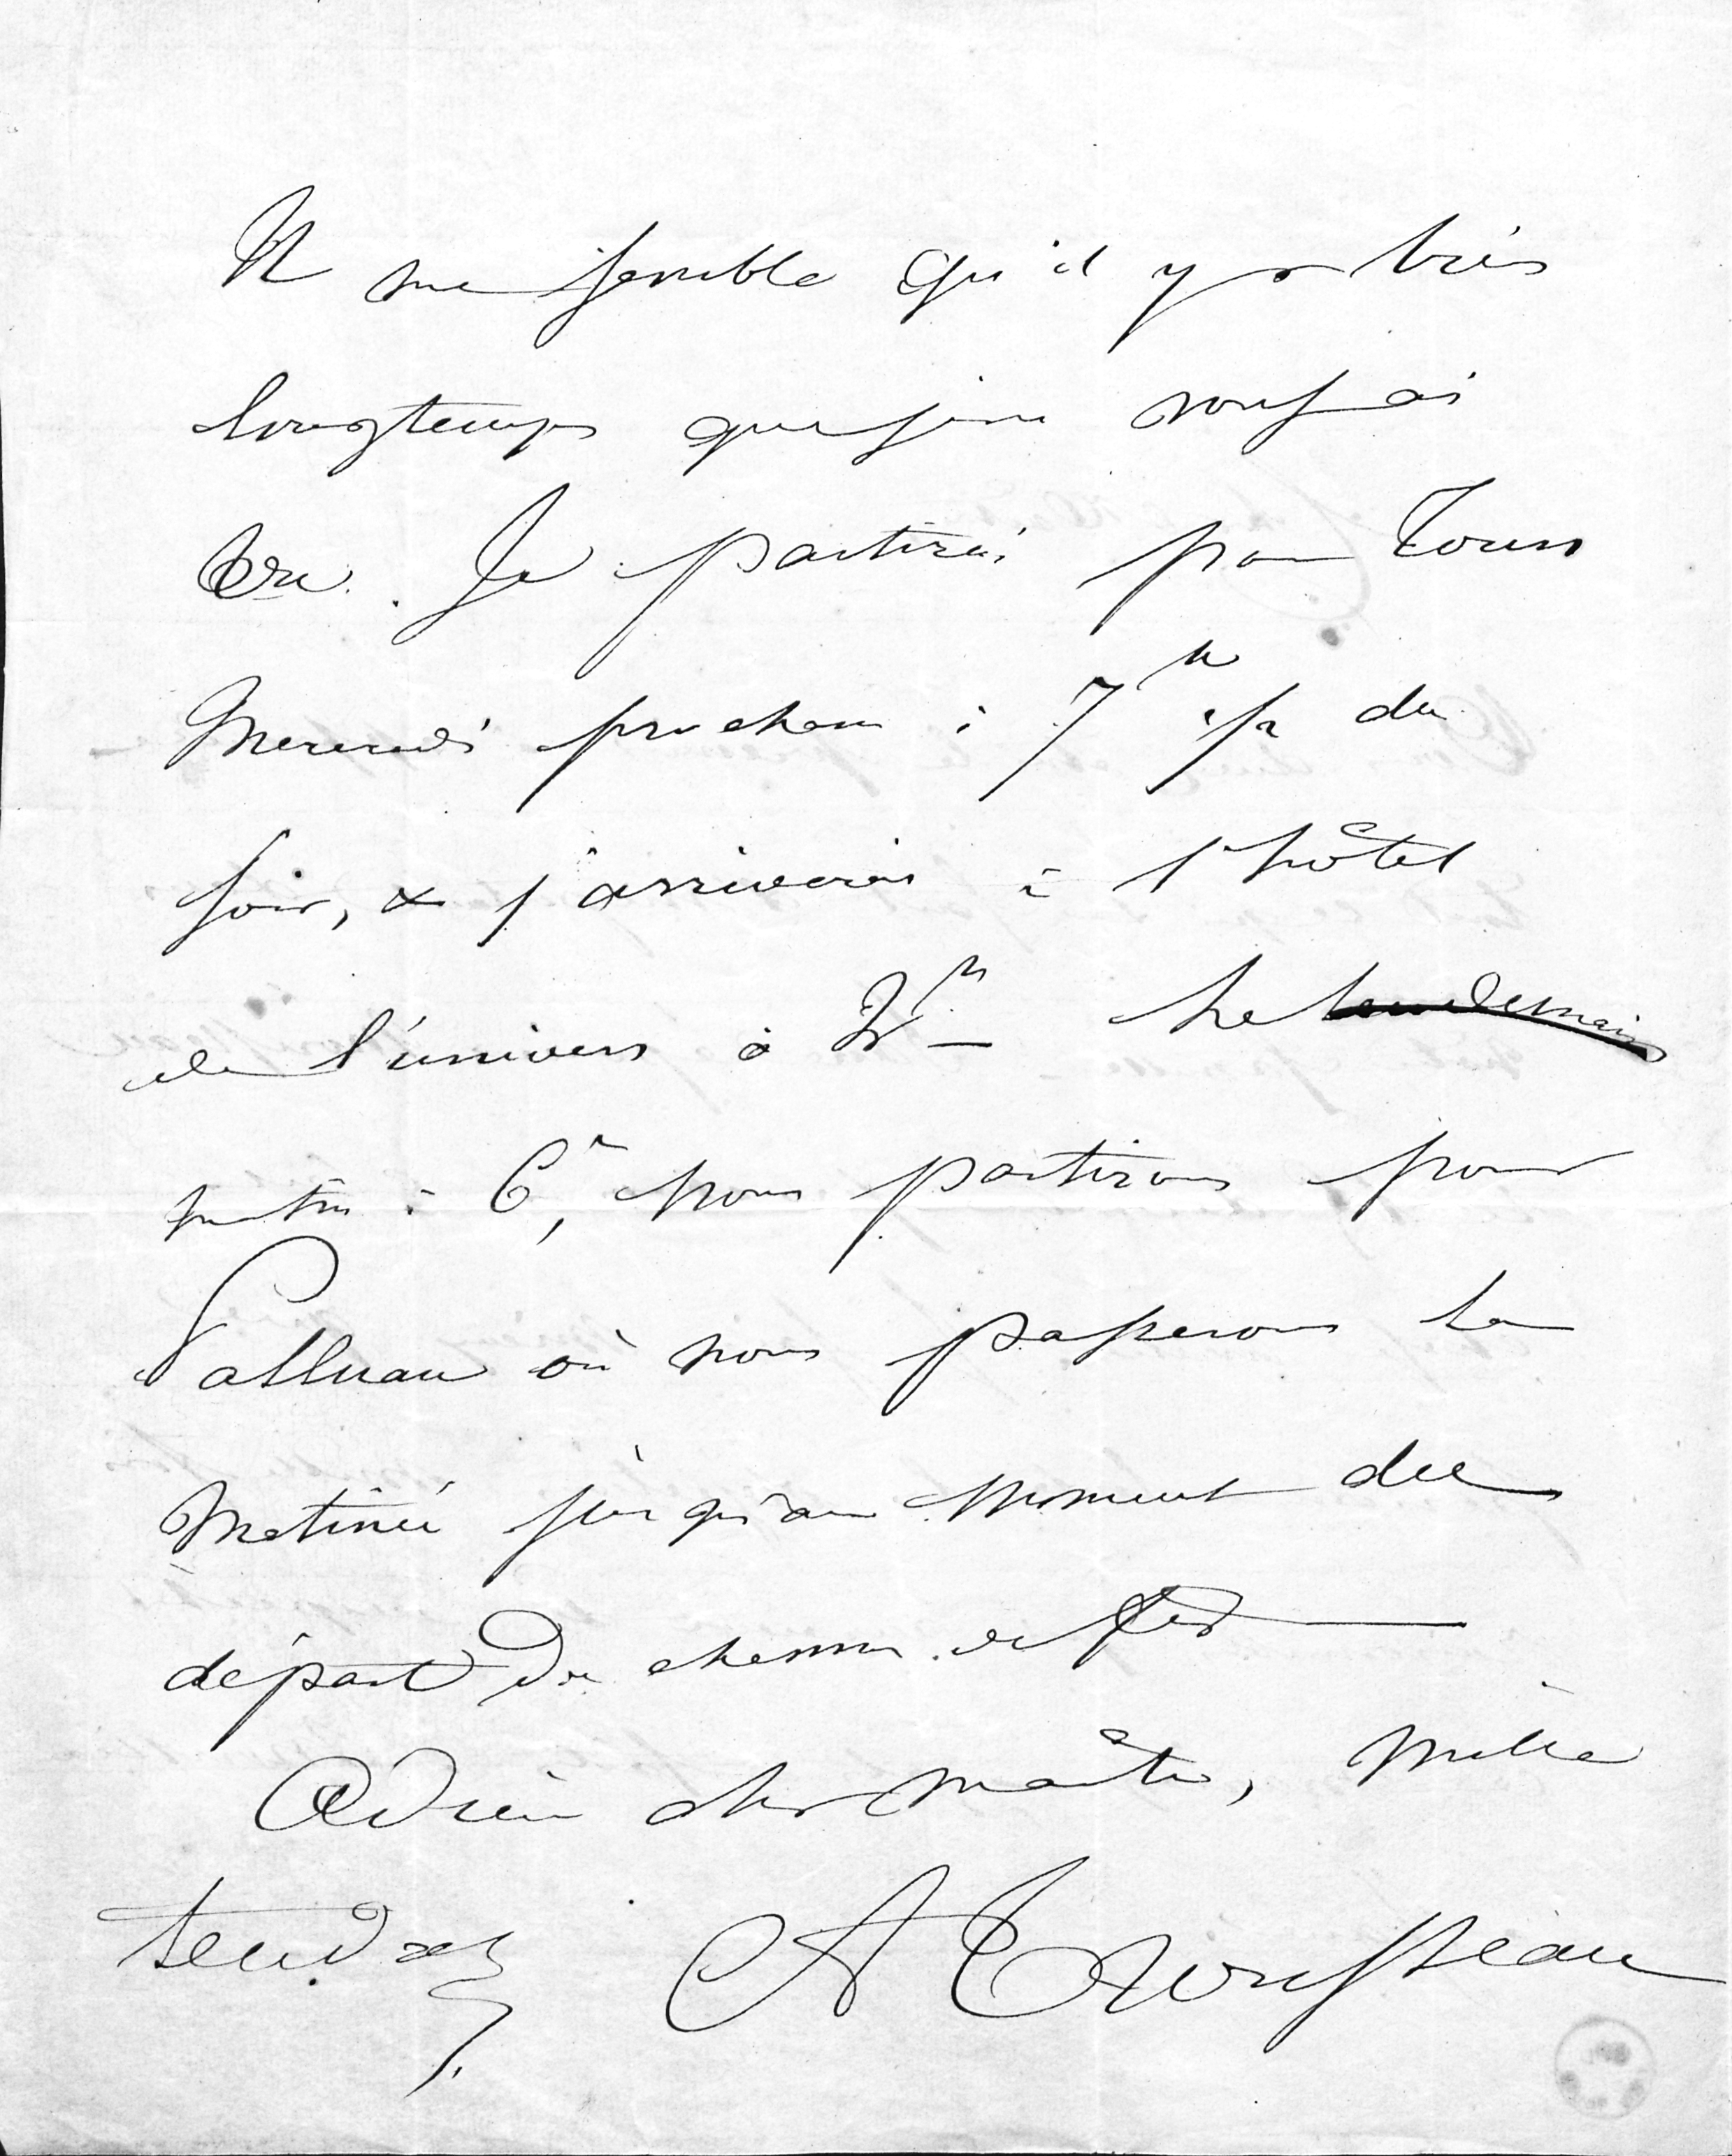 Il me semble qu'il y a très
longtemps que je ne vous ai
vu. Je partirai pour Tours
Mercredi prochain à 7h 1/2 du
soir, & j'arriverai à l'hôtel
de l'univers à h Le lendemain
matin à 6h, nous partirons pour
Palluau où nous passerons la
matinée jusqu'au moment du
départ du chemin de fer
Adieu cher maître, mille
tendresses A Trousseau